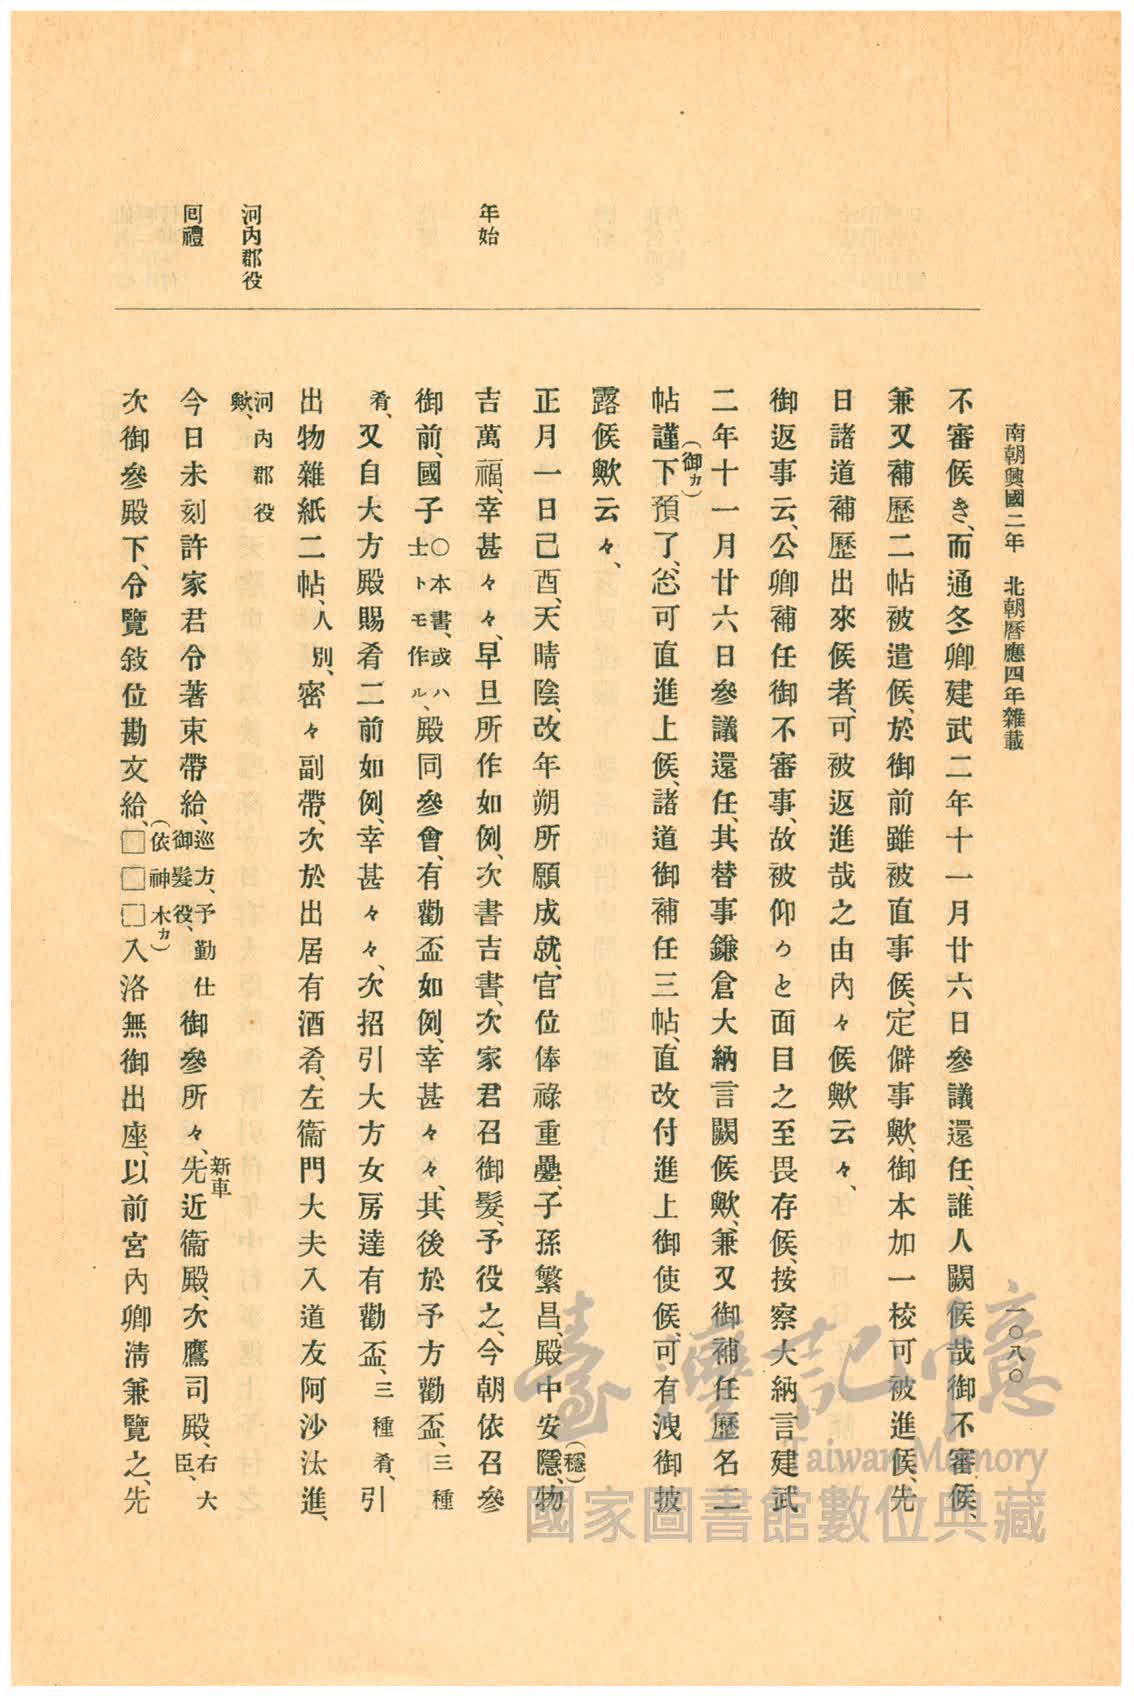 南朝興國二年　北朝曆應四年雜載
一〇八〇
不審候き、而通冬卿建武二年十一月廿六日參議還任、誰人闕候哉御不審候、
兼又補歷二帖被遣候、於御前雖被直事候、定僻事歟、御本加一校可被進候、先
日諸道補歷出來候者、可被返進哉之由內々候歟云々、
御返事云、公卿補任御不審事、故被仰のと面目之至畏存候、按察大納言建武
二年十一月廿六日參議還任、其替事鎌倉大納言闕候歟、兼又御補任歷名二
帖謹下(御カ)預了、忩可直進上候、諸道御補任三帖、直改付進上御使候、可有洩御披
露候歟云々、
年始
正月一日己酉、天晴陰、改年朔所願成就、官位俸祿重疊、子孫繁昌、殿中安隱(穩)、物
吉萬福、幸甚々々、早旦所作如例、次書吉書、次家君召御髮、予役之、今朝依召參
御前、國子〇本書、或ハ士トモ作ル、殿同參會、有勸盃如例、幸甚々々、其後於予方勸盃、三種
肴、又自大方殿賜肴二前如例、幸甚々々、次招引大方女房達有勸盃、三種肴、引
出物雜紙二帖、人別、密々副帶、次於出居有酒肴、左衞門大夫入道友阿沙汰進、
河內郡役
河內郡役歟、
回禮
今日未刻許家君令著束帶給、巡方、予勤仕御髮役、御參所々、先近衞殿、新車次鷹司殿、右大臣、
次御參殿下、令覽敍位勘文給、□□□(依神木カ)入洛無御出座、以前宮內卿淸兼覽之、先
臺灣記憶
Taiwan Memory
國家圖書館數位典藏